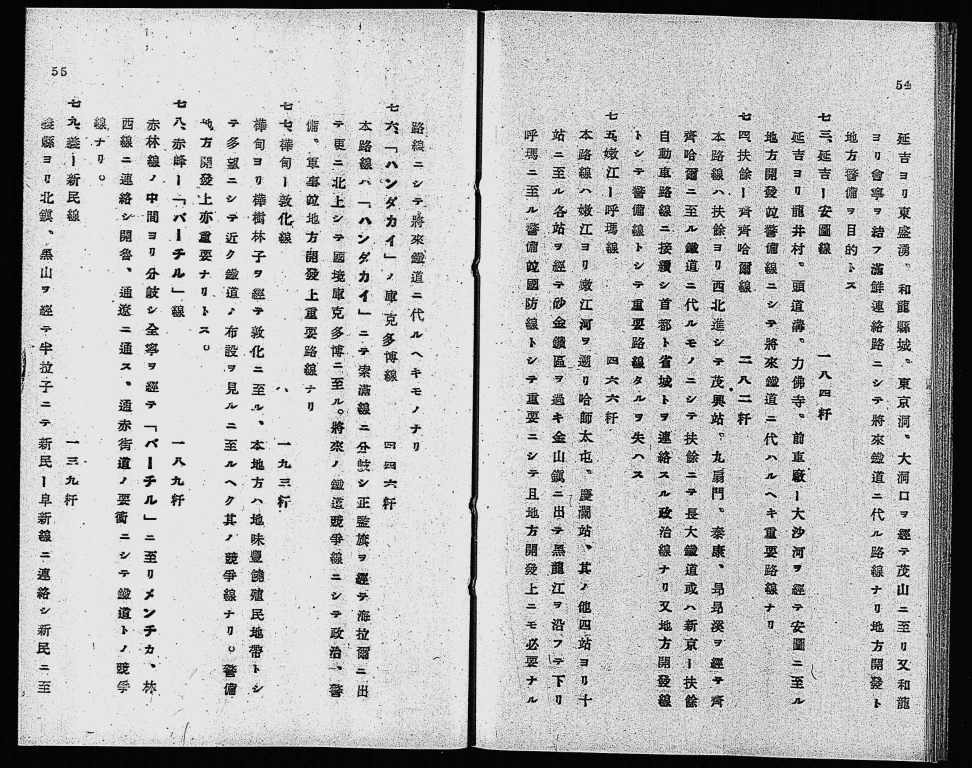 54
延吉ヨリ東盛湧、和龍縣城、東京洞、大洞口ヲ經テ茂山ニ至リ又和龍
ヨリ會寧ヲ結フ滿鮮連絡路ニシテ將來鐵道ニ代ル路線ナリ地方開發ト
地方警備ヲ目的トス
七三、延吉ー安圖線 一八四粁
延吉ヨリ龍井村、頭道溝、力佛寺、前車廠ー大沙河ヲ經テ安圖ニ至ル
地方開發竝警備線ニシテ將來鐵道ニ代ハルヘキ重要路線ナリ
七四、扶餘ー齊齊哈爾線 二八二粁
本路線ハ扶餘ヨリ西北進シテ茂興站、九扇門、泰康、昂昂溪ヲ經テ齊
齊哈爾ニ至ル鐵道ニ代ルモノニシテ扶餘ニテ長大鐵道或ハ新京ー扶餘
自動車路線ニ接續シ首都ト省城トヲ連絡スル政治線ナリ又地方開發線
トシテ警備線トシテ重要路線タルヲ失ハス
七五、嫩江ー呼瑪線 四六六粁
本路線ハ嫩江ヨリ嫩江河ヲ遡リ哈師太屯、慶瀾站、其ノ他四站ヨリ十
站ニ至ル各站ヲ經テ砂金鑛區ヲ過キ金山鎭ニ出テ黑龍江ヲ沿フテ下リ
呼瑪ニ至ル警備竝國防線トシテ重要ニシテ且地方開發上ニモ必要ナル
55
路線ニシテ將來鐵道ニ代ルヘキモノナリ
七六、「ハンダカイ」ノ庫克多博線 四四六粁
本路線ハ「ハンダカイ」ニテ索滿線ニ分岐シ正監旗ヲ經テ海拉爾ニ出
テ更ニ北上シテ國境庫克多博ニ至ル。將來ノ鐵道競爭線ニシテ政治、警
備、軍事竝地方開發上重要路線ナリ
七七、樺甸ー敦化線 一九三粁
樺甸ヨリ樺樹林子ヲ經テ敦化ニ至ル、本地方ハ地味豐饒殖民地帶トシ
テ多望ニシテ近ク鐵道ノ布設ヲ見ルニ至ルヘク其ノ競爭線ナリ。警備
地方開發上亦重要ナリトス。
七八、赤峰ー「バーチル」線 一八九粁
赤林線ノ中間ヨリ分岐シ全寧ヲ經テ「バーチル」ニ至リメンチカ、林
西線ニ連絡シ開魯、通遼ニ通ス、通赤街道ノ要衝ニシテ鐵道トノ競爭
線ナリ。
七九、義ー新民線 一三九粁
義縣ヨリ北鎭、黑山ヲ經テ半拉子ニテ新民ー阜新線ニ連絡シ新民ニ至